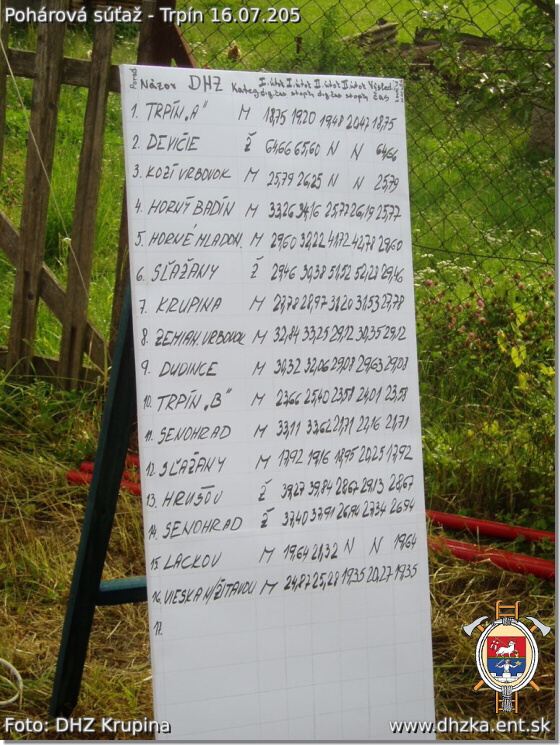 Pohárová súťaž - Trpín 16.07.205
Názov DHZ Kateg. I. útok I. útok II. útok II. útok Výsled.
dig. čas stopk. dig. čas stopk. čas
1. TRPÍN „A" M 18,75 19,20 19,48 20,47 18,75
2. DEVIČIE Ž 64,66 65,60 N N 64,66
3. KOZÍ VRBOVOK M 25,79 26,25 N N 25,79
4. HORNÝ BADÍN M 33,26 34,16 25,77 26,19 25,77
5. HORNÉ MLADON. M 29,60 32,22 41,72 42,78 29,60
6. SĽAŽANY Ž 29,46 30,38 51,52 52,28 29,46
7. KRUPINA M 27,78 28,97 31,20 31,53 27,78
8. ZEMIAN. VRBOVOK M 32,84 33,25 29,12 30,35 29,12
9. DUDINCE M 31,32 32,06 29,08 29,63 29,08
10. TRPÍN „B" M 23,66 25,40 23,58 24,01 23,58
11. SENOHRAD M 33,11 33,62 21,71 22,16 21,71
12. SĽAŽANY M 17,92 19,16 18,95 20,25 17,92
13. HRUŠOV Ž 39,27 39,84 28,67 29,13 28,67
14. SENOHRAD Ž 37,40 37,91 26,94 27,34 26,94
15. LACKOV M 19,64 21,32 N N 19,64
16. VIESKA N/ŽITAVOU M 24,87 25,28 19,35 20,27 19,35
17.
Foto: DHZ Krupina
www.dhzka.ent.sk